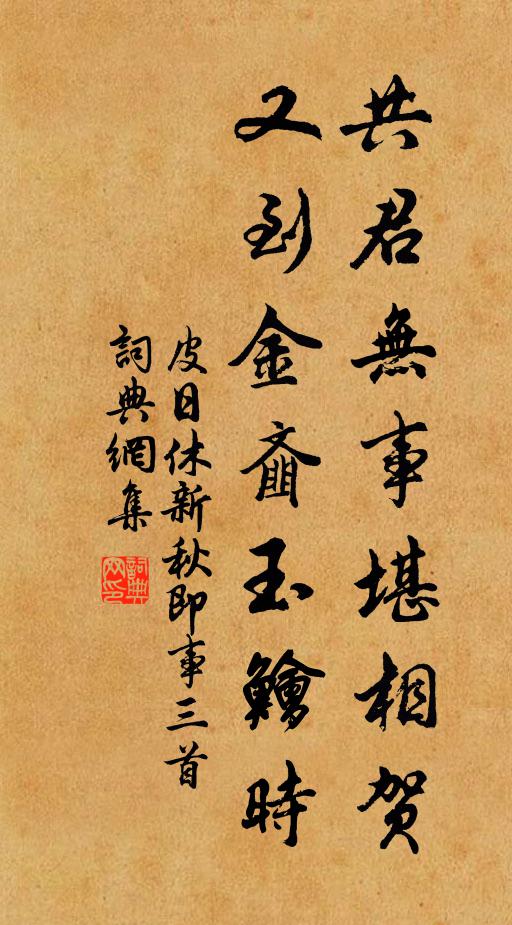 共君無事堪相賀
又到金齏玉鱠時
皮日休新秋即事三首
詞典網集
詞典网印